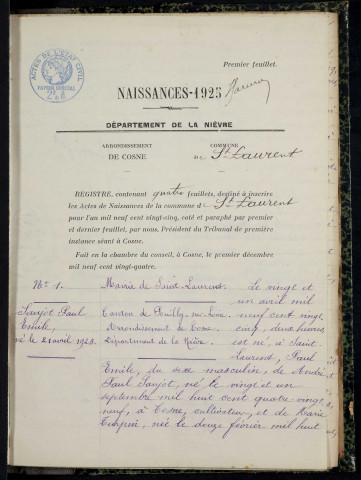 Premier feuillet.
ACTES DE L'ÉTAT CIVIL
PAPIER SPÉCIAL
NAISSANCES-1925
DÉPARTEMENT DE LA NIÈVRE
ARRONDISSEMENT
DE COSNE
COMMUNE
DE St Laurent
REGISTRE, contenant quatre feuillets, destiné à inscrire
les Actes de Naissances de la commune d e St Laurent
pour l'an mil neuf cent vingt-cinq, coté et paraphé par premier
et dernier feuillet, par nous, Président du Tribunal de première
instance séant à Cosne.
Fait en la chambre du conseil, à Cosne, le premier décembre
mil neuf cent vingt-quatre.
No 1.
Saujot Paul
Emile,
né le 21 avril 1925.
Mairie de Saint-Laurent.
Canton de Pouilly-sur-Loire
Arrondissement de Cosne
Département de la Nièvre
Le vingt et
un avril mil
neuf cent vingt
cinq, deux heures,
est né, à Saint
Laurent, Paul
Emile, du sexe masculin, de André
Paul Saujot, né le vingt et un
septembre mil huit cent quatre vingt
neuf, à Cosne, cultivateur, et de Marie
née le douze février mil huit